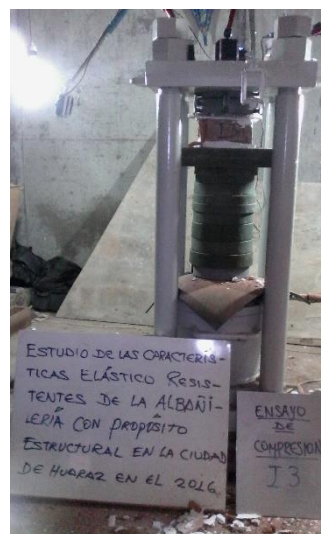 ESTUDIO DE LAS CARACTERÍS-
TICAS ELÁSTICO RESIS-
TENTES DE LA ALBAÑI-
LERÍA CON PROPÓSITO
ESTRUCTURAL EN LA CIUDAD
DE HUARAZ EN EL 2016
ENSAYO
DE
COMPRESION
I3